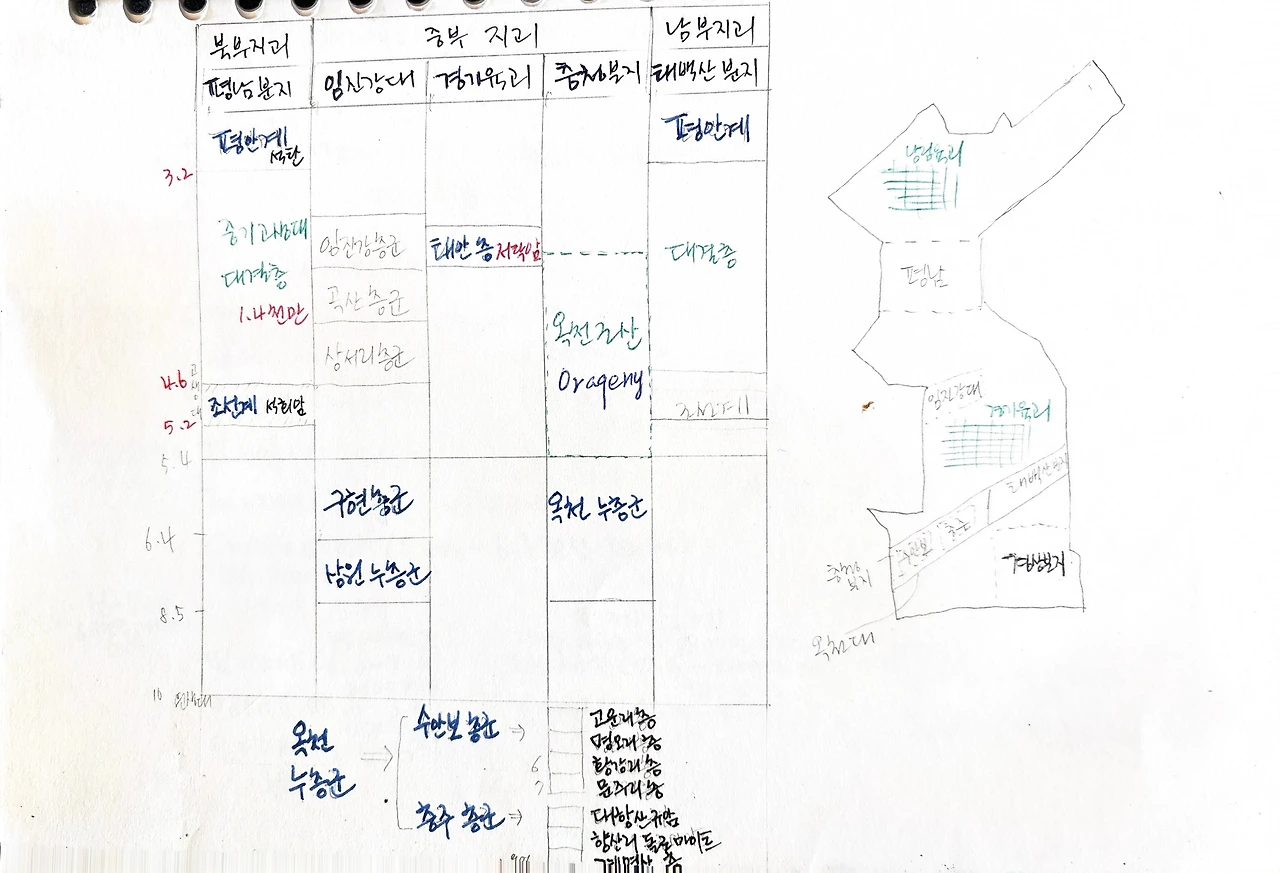 북부지괴 중부 지괴 남부지괴
평남분지 임진강대 경기육괴 충청분지 태백산분지
평안계 석탄
평안계
3.2
중기고생대
대결층
1.4천만
임진강층군
태안층 저탁암
대결층
곡산층군
상서리층군
옥천조산
Orogeny
4.6 고생대
조선계 석회암
5.2
조선계
5.4
구현층군
옥천 누층군
6.4
상원 누층군
8.5
10
옥천
누층군
수안보 층군
고운리층
명오리층
황강리층
문주리층
6
7
충주 층군
대향산규암
향산리 돌로마이트
계명산층
낭림육괴
평남
임진강대
경기육괴
태백산분지
수안보
충주
경상분지
옥천대